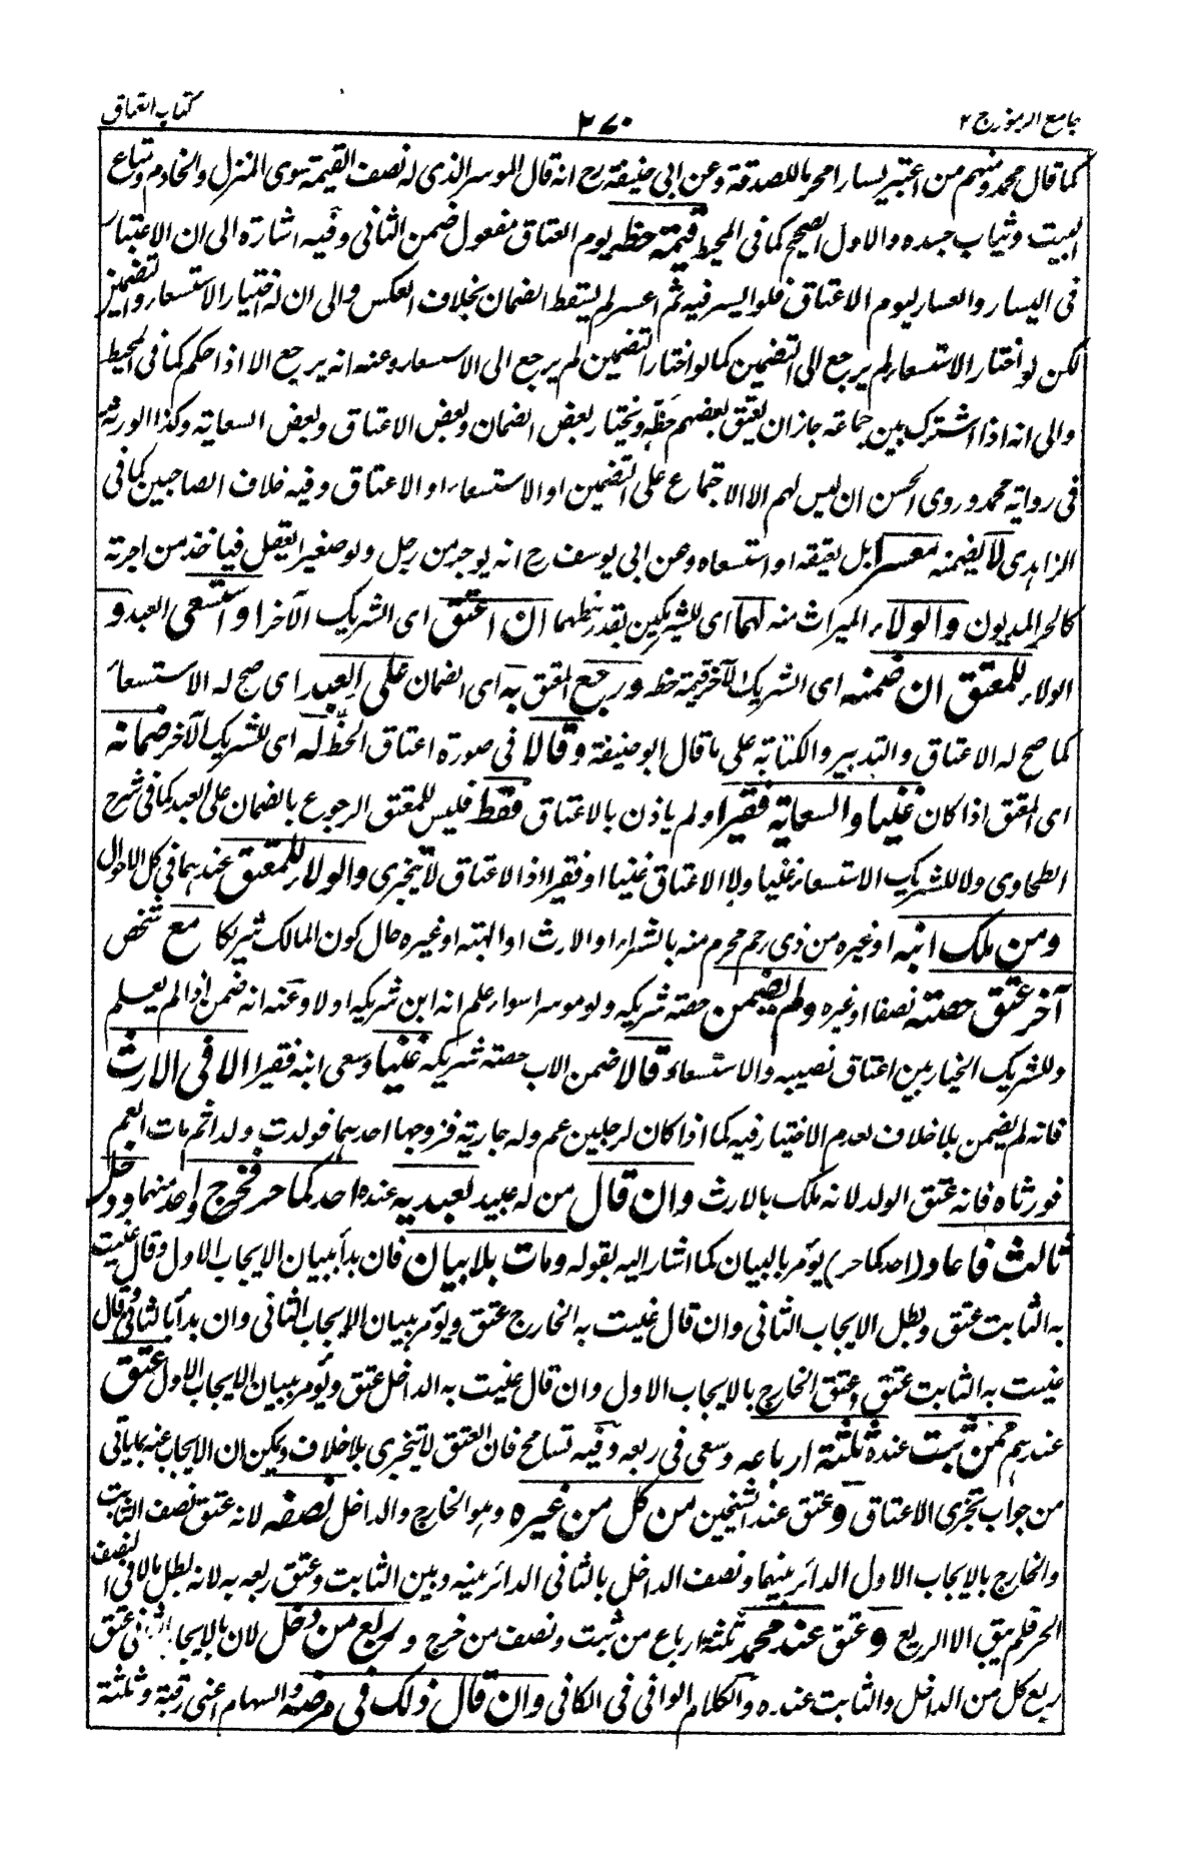 جامع الرموز ج ٢
٢٧٠
كتاب العتاق
كما قال محمد ومنهم من اعتبر يسارا محرما للصدقة وعن ابى حنيفة رح انه قال الموسر الذى له نصف القيمة سوى المنزل والخادم ومتاع
البيت وثياب جسده والاول الصحيح كما فى المحيط قيمة حظه يوم العتاق مفعول ضمن الثانى وفيه اشارة الى ان الاعتبار
فى اليسار والعسار ليوم الاعتاق فلو ايسر فيه ثم اعسر لم يسقط الضمان بخلاف العكس والى ان له اختيار الاستسعاء والتضمين
لكن لو اختار الاستسعاء لم يرجع الى التضمين كما لو اختار التضمين لم يرجع الى الاستسعاء وعنه انه يرجع الا اذا حكم كما فى المحيط
والى انه اذا اشترك بين جماعة جاز ان يعتق بعضهم حظه ويختار بعض الضمان وبعض الاعتاق وبعض السعاية وكذا الورثة
فى رواية محمد وروى الحسن ان ليس لهم الا الاجتماع على التضمين او الاستسعاء او الاعتاق وفيه خلاف الصاحبين كما فى
الزاهدى لا يضمنه معسرا بل يعتقه او استسعاه وعن ابى يوسف رح انه يوجر من رجل ولو صغير العقل فياخذ من اجرته
كالحر المديون والولاء الميراث منه لهما اى للشريكين بقدر حظهما ان اعتق اى الشريك الآخر او استسعى العبد و
الولاء للمعتق ان ضمنه اى الشريك الآخر قيمة حظه ورجع المعتق به اى الضمان على العبد اى صح له الاستسعاء
كما صح له الاعتاق والتدبير والكتابة على ما قال ابو حنيفة وقالا فى صورة اعتاق الحظ له اى للشريك الآخر ضمانه
اى المعتق اذا كان غنيا والسعاية فقيرا ولم ياذن بالاعتاق فقط فليس للمعتق الرجوع بالضمان على العبد كما فى شرح
الطحاوى ولا للشريك الاستسعاء غنيا ولا الاعتاق غنيا او فقيرا اذ الاعتاق لا يتجزى والولاء للمعتق عندهما فى كل الاحوال
ومن ملك ابنه او غيره من ذى رحم محرم منه بالشراء او الارث او الهبة او غيره حال كون المالك شريكا مع شخص
آخر عتق حصته نصفا او غيره ولم يضمن حصة شريكه ولو موسرا سواء علم انه ابن شريكه او لا وعنه انه ضمن اذا لم يعلم
وللشريك الخيار بين اعتاق نصيبه والاستسعاء وقالا ضمن الاب حصة شريكه غنيا وسعى ابنه فقيرا الا فى الارث
فانه لم يضمن بلا خلاف لعدم الاختيار فيه كما اذا كان لرجلين عم وله جارية فزوجها احدهما فولدت ولدا ثم مات العم
فورثاه فانه عتق الولد لانه ملك بالارث وان قال من له عبيد لعبديه عنده احدكما حر فخرج واحد منهما ودخل
ثالث فاعاد (احدكما حر) يؤمر بالبيان كما اشار اليه بقوله ومات بلا بيان فان بدأ ببيان الايجاب الاول وقال عنيت
به الثابت عتق وبطل الايجاب الثانى وان قال عنيت به الخارج عتق ويؤمر ببيان الايجاب الثانى وان بدأ بالثانى وقال
عنيت به الثابت عتق وعتق الخارج بالايجاب الاول وان قال عنيت به الداخل عتق ويؤمر ببيان الايجاب الاول عتق
عندهم ممن ثبت عنده ثلثة ارباعه وسعى فى ربعه وفيه تسامح فان العتق لا يتجزى بلا خلاف ويمكن ان الايجاب عنه بما ياتى
من جواب تجزى الاعتاق وعتق عند الشيخين من كل من غيره وهو الخارج والداخل نصفه لانه عتق نصف الثابت
والخارج بالايجاب الاول الدائر بينهما ونصف الداخل بالثانى الدائر بينه وبين الثابت وعتق ربعه به لانه بطل بالاقى النصف
الحر فلم يبق الا الربع وعتق عند محمد ثلثة ارباع من ثبت ونصف من خرج وربع من دخل لان بالايجاب الثانى عتق
ربع كل من الداخل والثابت عنده والكلام الوافى فى الكافى وان قال ذلك فى مرضه والسهام اعنى رقبة وثلثة